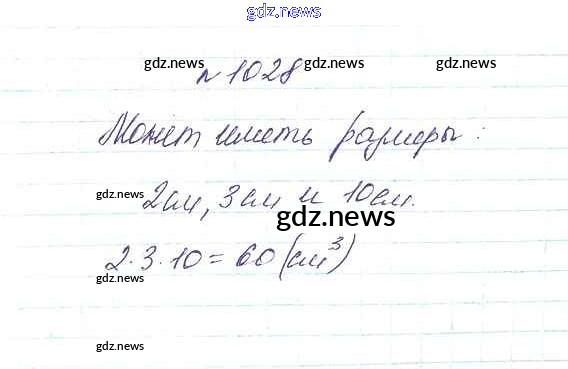 gdz.news
gdz.news № 1028 gdz.news gdz.news
Может иметь размеры:
gdz.news
2 см, 3 см и 10 см.
gdz.news
2·3·10 = 60 (см³)
gdz.news
gdz.news